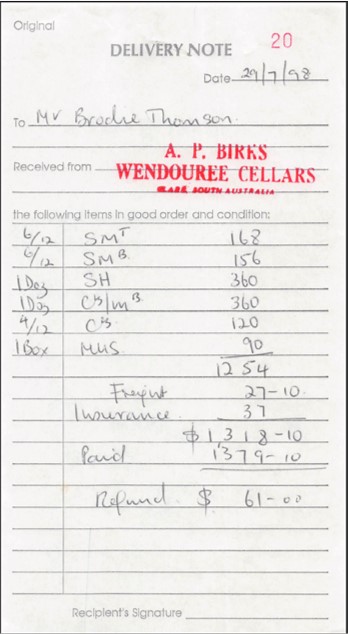 Original
DELIVERY NOTE 20
Date 29/7/98
To Mr Brodie Thomson.
Received from A. P. BIRKS
WENDOUREE CELLARS
CLARE SOUTH AUSTRALIA
the following items in good order and condition:
6/12 SMT 168
6/12 SMB. 156
1 Doz SH 360
1 Doz CS/MB. 360
4/12 CS. 120
1 Box MUS 90
1254
Freight 27-10
Insurance. 37
$1,318-10
Paid 1379-10
Refund. $ 61-00
Recipient's Signature